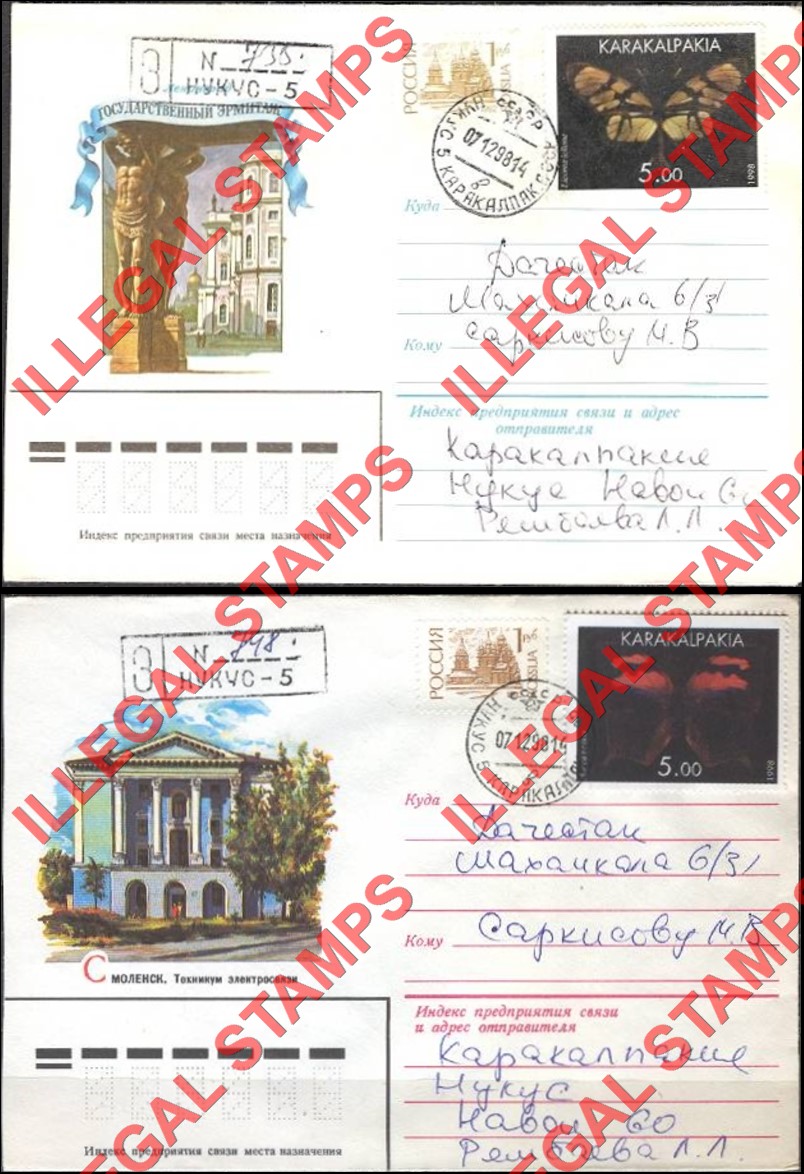 N 735.
З НУКУС-5
Ленинград
ГОСУДАРСТВЕННЫЙ ЭРМИТАЖ
РОССИЯ
1 руб
ROSSIJA
KARAKALPAKIA
5.00
1998
НУКУС 5 КАРАКАЛПАК.СССР
07129814
Куда
Дагестан
Махачкала 6/31
Кому
Саркисову М.В
Индекс предприятия связи и адрес
отправителя
Каракалпакие
Нукус Навои 60
Рембаева Л.Л.
Индекс предприятия связи места назначения
N 748.
З НУКУС-5
РОССИЯ
1 руб
ROSSIJA
KARAKALPAKIA
5.00
1998
НУКУС 5 КАРАКАЛПАК
07129814
СМОЛЕНСК. Техникум электросвязи
Куда
Дагестан
Махачкала 6/31
Кому
Саркисову М.В
Индекс предприятия связи
и адрес отправителя
Каракалпакие
Нукус
Навои 60
Рембаева Л.Л.
Индекс предприятия связи места назначения
ILLEGAL STAMPS
ILLEGAL STAMPS
ILLEGAL STAMPS
ILLEGAL STAMPS
ILLEGAL STAMPS
ILLEGAL STAMPS